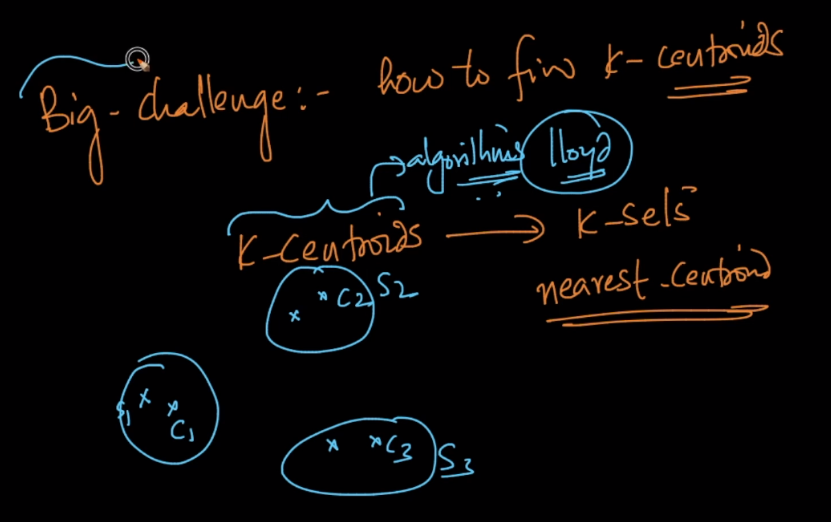 Big-challenge:- how to fin K-centroids
algorithms lloyd
K-Centroids → K-sels
nearest-Centroid
C2 S2
S1 C1
C3 S3